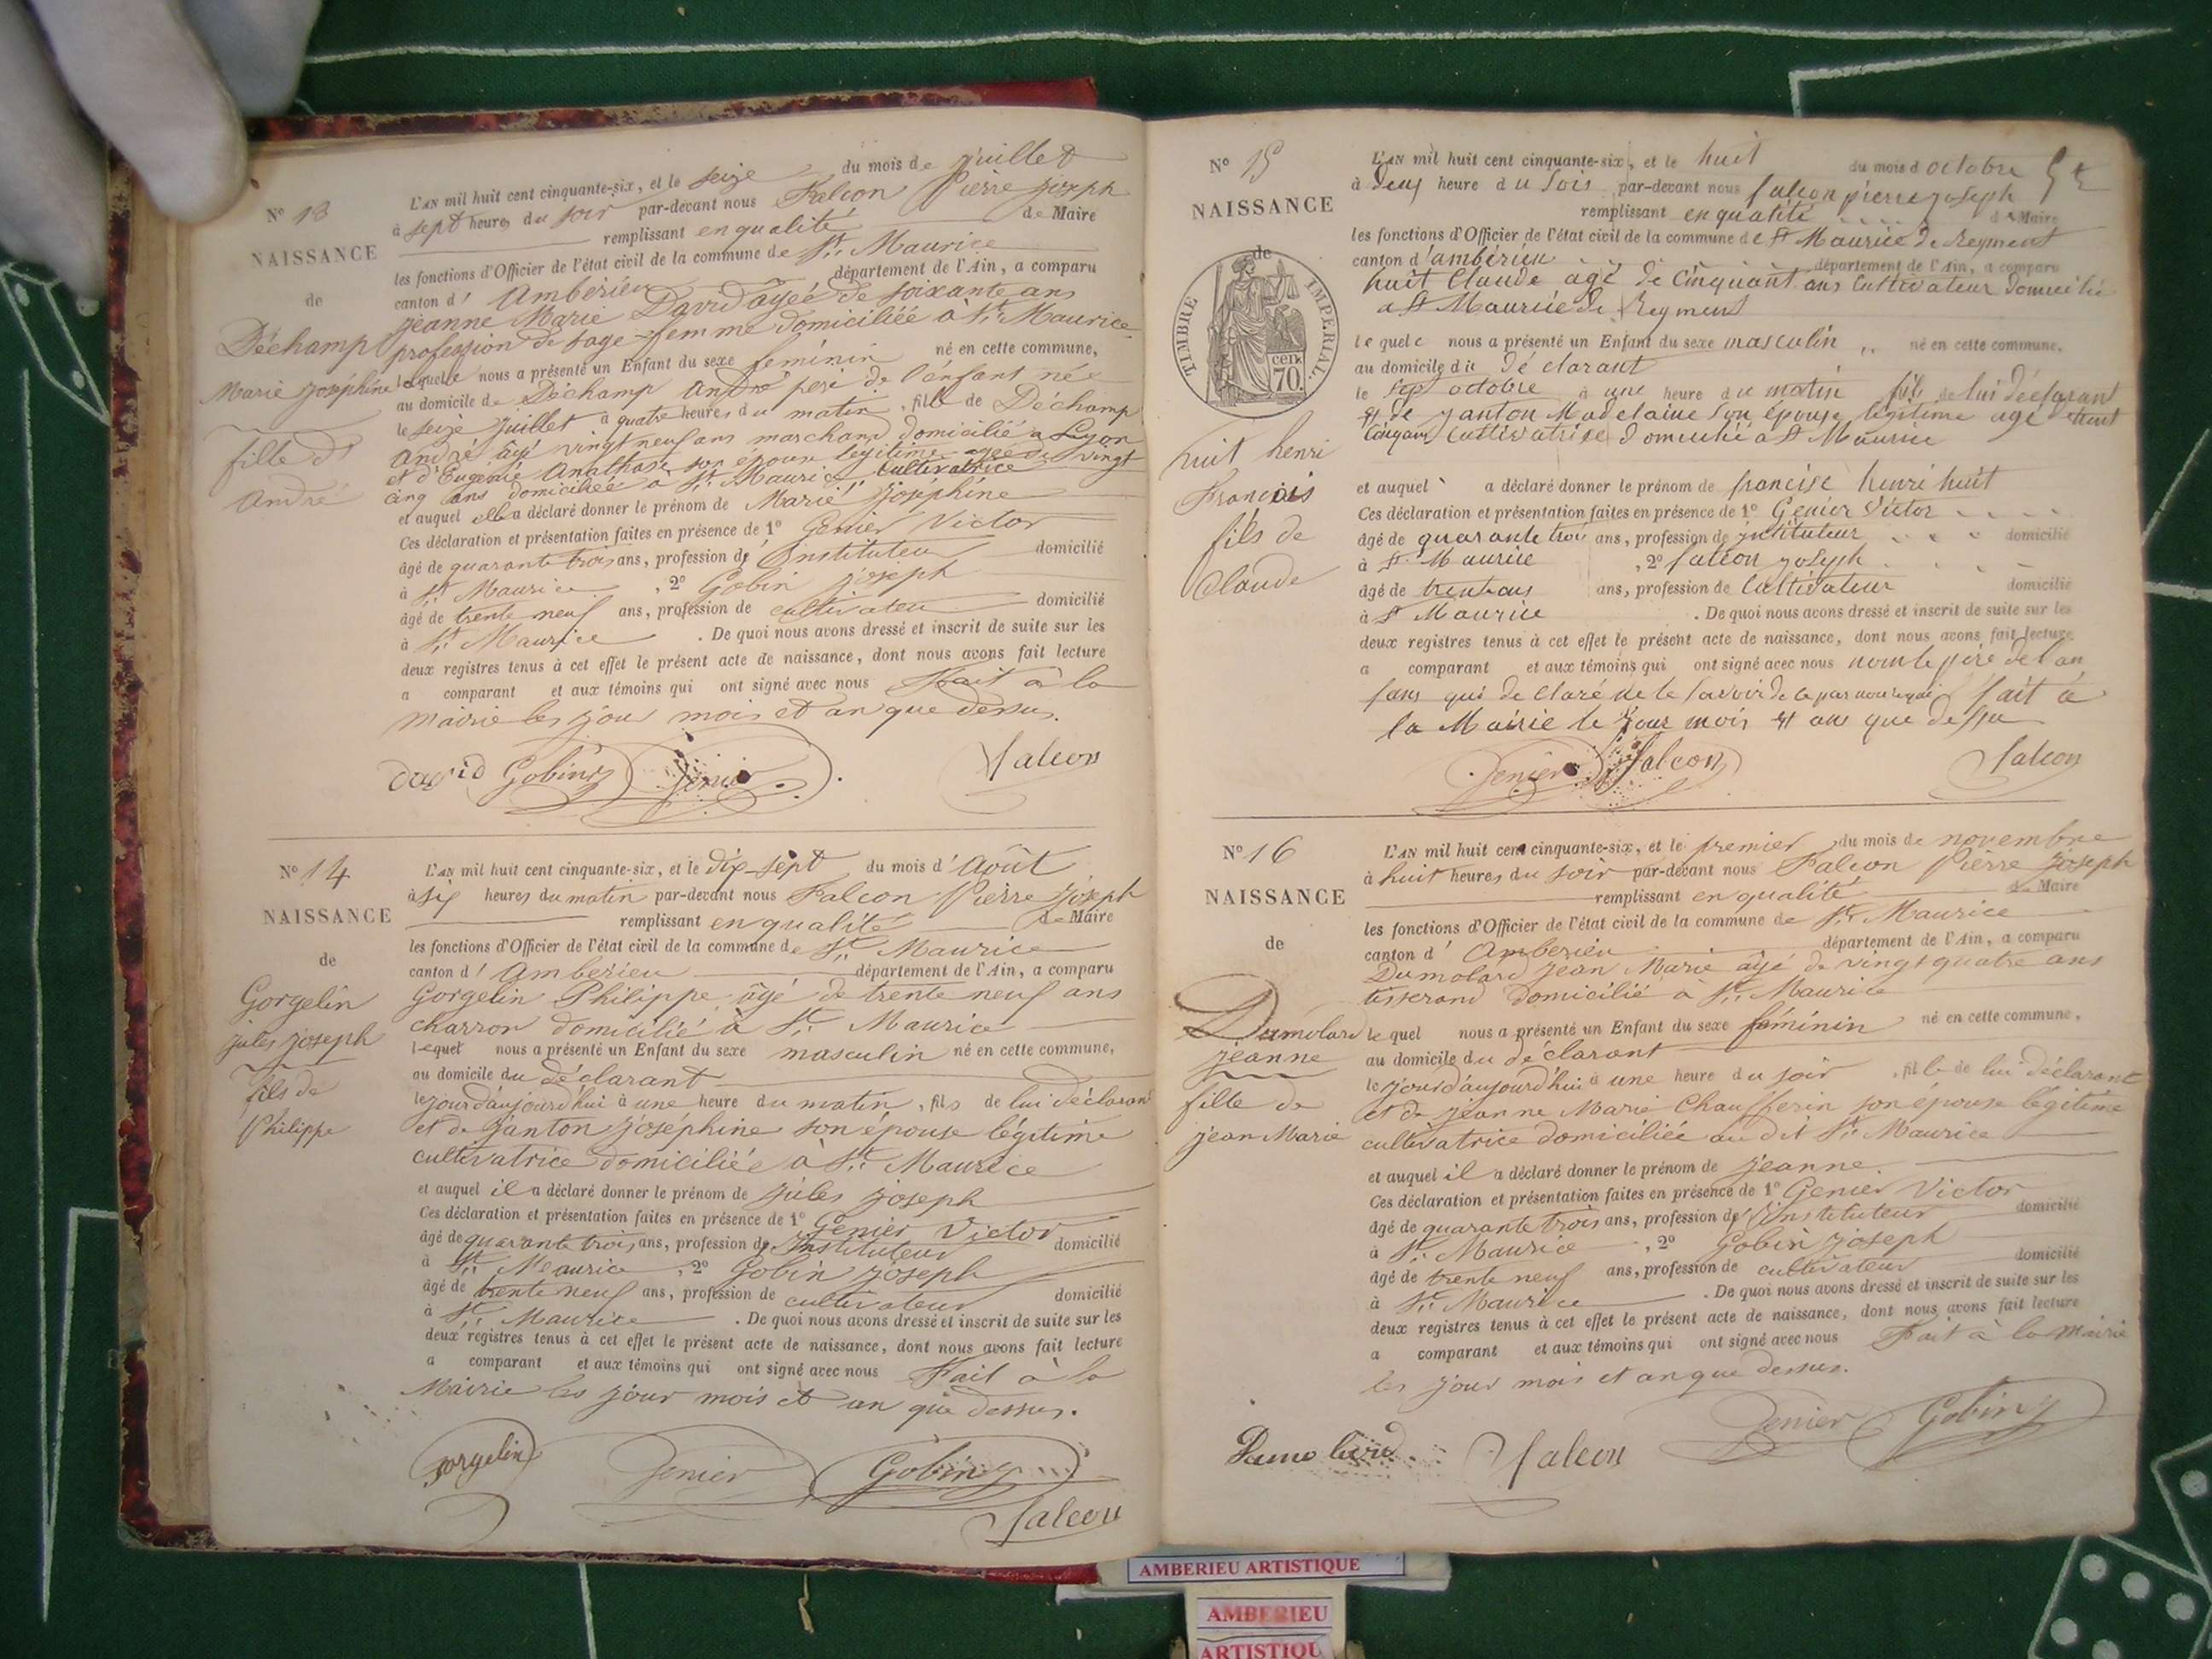 N° 13
NAISSANCE
de
Déchamp
Marie Joséphine
fille d'
André
L'AN mil huit cent cinquante-six, et le seize du mois de juillet
à sept heures du soir par-devant nous Falcon Pierre Joseph
remplissant en qualité de Maire
les fonctions d'Officier de l'état civil de la commune de St. Maurice
canton d' Amberieu département de l'Ain, a comparu
Jeanne Marie David âgée de soixante ans
profession de sage-femme domiciliée à St. Maurice
laquelle nous a présenté un Enfant du sexe feminin né en cette commune,
au domicile de Déchamp André père de l'enfant née
le seize juillet à quatre heures du matin, fille de Déchamp
André âgé vingt neuf ans marchand domicilié a Lyon
et d'Eugénie Analhase son épouse légitime agée de vingt
cinq ans domiciliée à St. Maurice cultivatrice
et auquel elle a déclaré donner le prénom de Marie Joséphine
Ces déclaration et présentation faites en présence de 1° Genier Victor
âgé de quarante trois ans, profession d' Instituteur domicilié
à St. Maurice , 2° Gobin Joseph
âgé de trente neuf ans, profession de cultivateur domicilié
à St. Maurice . De quoi nous avons dressé et inscrit de suite sur les
deux registres tenus à cet effet le présent acte de naissance, dont nous avons fait lecture
a comparant et aux témoins qui ont signé avec nous Fait à la
mairie les jour mois et an que dessus.
David Gobin J Genier Falcon
N° 14
NAISSANCE
de
Gorgelin
jules joseph
fils de
Philippe
L'AN mil huit cent cinquante-six, et le dix-sept du mois d' Août
à six heures du matin par-devant nous Falcon Pierre Joseph
remplissant en qualité de Maire
les fonctions d'Officier de l'état civil de la commune de St. Maurice
canton d' Amberieu département de l'Ain, a comparu
Gorgelin Philippe âgé de trente neuf ans
charron domicilié à St. Maurice
lequel nous a présenté un Enfant du sexe masculin né en cette commune,
au domicile du déclarant
le jour d'aujourd'hui à une heure du matin, fils de lui déclarant
et de Janton Joséphine son épouse légitime
cultivatrice domiciliée à St. Maurice
et auquel il a déclaré donner le prénom de Jules Joseph
Ces déclaration et présentation faites en présence de 1° Genier Victor
âgé de quarante trois ans, profession d' Instituteur domicilié
à St. Maurice , 2° Gobin Joseph
âgé de trente neuf ans, profession de cultivateur domicilié
à St. Maurice . De quoi nous avons dressé et inscrit de suite sur les
deux registres tenus à cet effet le présent acte de naissance, dont nous avons fait lecture
a comparant et aux témoins qui ont signé avec nous Fait à la
Mairie les jour mois et an que dessus.
Gorgelin Genier Gobin J
Falcon
N° 15
NAISSANCE
de
TIMBRE IMPERIAL
cen 70.
huit henri
François
fils de
Claude
L'AN mil huit cent cinquante-six, et le huit du mois d octobre
à deux heure du soir par-devant nous falcon pierre joseph
remplissant en qualité de Maire
les fonctions d'Officier de l'état civil de la commune de St Maurice de Reyment
canton d'ambérieu département de l'Ain, a comparu
huit Claude agé de Cinquant ans Cultivateur domicilié
a St Maurice de Reyment
le quel nous a présenté un Enfant du sexe masculin né en cette commune,
au domicile du déclarant
le sept octobre à une heure du matin fils de lui déclarant
et de Janton Madelaine son épouse légitime agé de trent
Cultivatrise domicilié a St Maurice
et auquel a déclaré donner le prénom de francise henri huit
Ces déclaration et présentation faites en présence de 1° Genier Victor
âgé de quarante trois ans, profession de jnstituteur domicilié
à St Maurice , 2° falcon joseph
âgé de trent ans, profession de Cultivateur domicilié
à St Maurice . De quoi nous avons dressé et inscrit de suite sur les
deux registres tenus à cet effet le présent acte de naissance, dont nous avons fait lecture
a comparant et aux témoins qui ont signé avec nous nom le père de l'an
fans qui declaré ne le savoir de ce par nous requi fait a
la Mairie le jour mois et an que dessu
Genier falcon falcon
N° 16
NAISSANCE
de
Dumolard
jeanne
fille de
jean Marie
L'AN mil huit cent cinquante-six, et le premier du mois de novembre
à huit heures du soir par-devant nous Falcon Pierre Joseph
remplissant en qualité de Maire
les fonctions d'Officier de l'état civil de la commune de St. Maurice
canton d' Amberieu département de l'Ain, a comparu
Dumolard Jean Marie âgé de vingt quatre ans
tisserand domicilié à St. Maurice
lequel nous a présenté un Enfant du sexe féminin né en cette commune,
au domicile du déclarant
le jour d'aujourd'hui à une heure du soir , fille de lui déclarant
et de Jeanne Marie Chaufferin son épouse légitime
cultivatrice domiciliée au dit St. Maurice
et auquel il a déclaré donner le prénom de Jeanne.
Ces déclaration et présentation faites en présence de 1° Genier Victor
âgé de quarante trois ans, profession d' Instituteur domicilié
à St. Maurice , 2° Gobin Joseph
âgé de trente neuf ans, profession de cultivateur domicilié
à St. Maurice . De quoi nous avons dressé et inscrit de suite sur les
deux registres tenus à cet effet le présent acte de naissance, dont nous avons fait lecture
a comparant et aux témoins qui ont signé avec nous Fait à la Mairie
les jour mois et an que dessus.
Dumolard Falcon Genier Gobin J
AMBERIEU ARTISTIQUE
AMBERIEU
ARTISTIQU